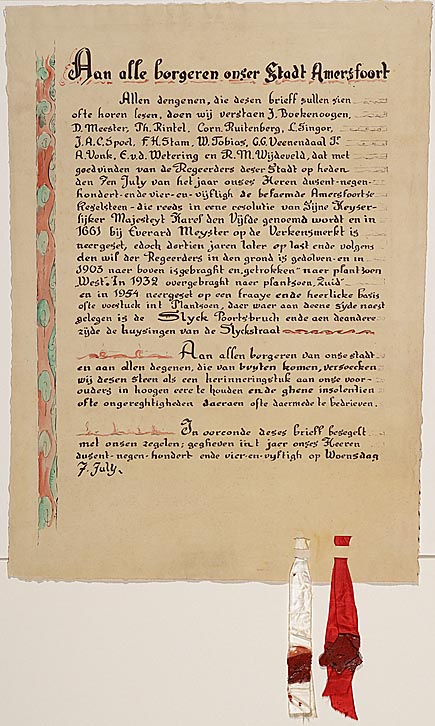 Aan alle borgeren onser Stadt Amersfoort
Allen dengenen, die desen brieff sullen sien
ofte horen lesen, doen wij verstaen J. Boekenoogen,
D. Meester, Th. Rintel, Corn. Ruitenberg, L. Singor,
J.A.C. Spoel, F.H. Stam, W. Tobias, G.G. Veenendaal Jr
A. Vonk, E.v.d. Wetering en R.M. Wijdeveld, dat met
goedvinden van de Regeerders deser Stadt op heden
den 7en July van het jaer onses Heren dusent-negen-
hondert-ende-vier-en-vijftigh de befaemde Amersfoortse
Keselsteen-die reeds in eene resolutie van Sijne Keyser-
lijker Majesteyt Karel den Vijfde genoemd wordt en in
1661 bij Everard Meyster op de Verkensmerkt is
neergeset, edoch dertien jaren later op last ende volgens
den wil der Regeerders in den grond is gedolven-en in
1903 naer boven is gebraght en getrokken-naer plantsoen
"West". In 1932 overgebraght naer plantsoen "Zuid"
en in 1954 neergeset op een fraaye ende heerlicke basis
ofte voetstuck in't Plandsoen, daer waer aan deene syde naest
gelegen is de Slyck Poortsbruch ende aen deandere
zijde de huysingen van de Slyckstraat
Aan allen borgeren van onse stadt
en aan allen degenen, die van buyten komen, versoecken
wij desen steen als een herinneringstuk aan onse voor-
ouders in hoogen eere te houden en de ghene insolentien
ofte ongereghtigheden daeraen ofte daermede te bedrieven.
In oorconde deses brieff besegelt
met onsen zegelen; geghieven in't jaer onses Heeren
dusent-negen-hondert ende vier-en-vyftigh op Woensdag
7. July.